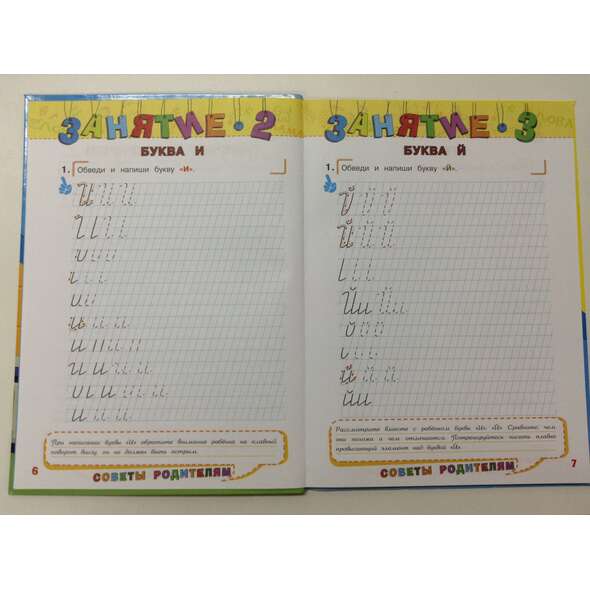 ЗАНЯТИЕ • 2
БУКВА И
1. Обведи и напиши букву «И».
При написании буквы «И» обратите внимание ребёнка на плавный
поворот внизу: он не должен быть острым.
6
СОВЕТЫ РОДИТЕЛЯМ
ЗАНЯТИЕ • 3
БУКВА Й
1. Обведи и напиши букву «Й».
Рассмотрите вместе с ребёнком буквы «И» «Й». Сравните, чем
они похожи и чем отличаются. Потренируйтесь писать плавно
провисающий элемент над буквой «Й».
СОВЕТЫ РОДИТЕЛЯМ
7